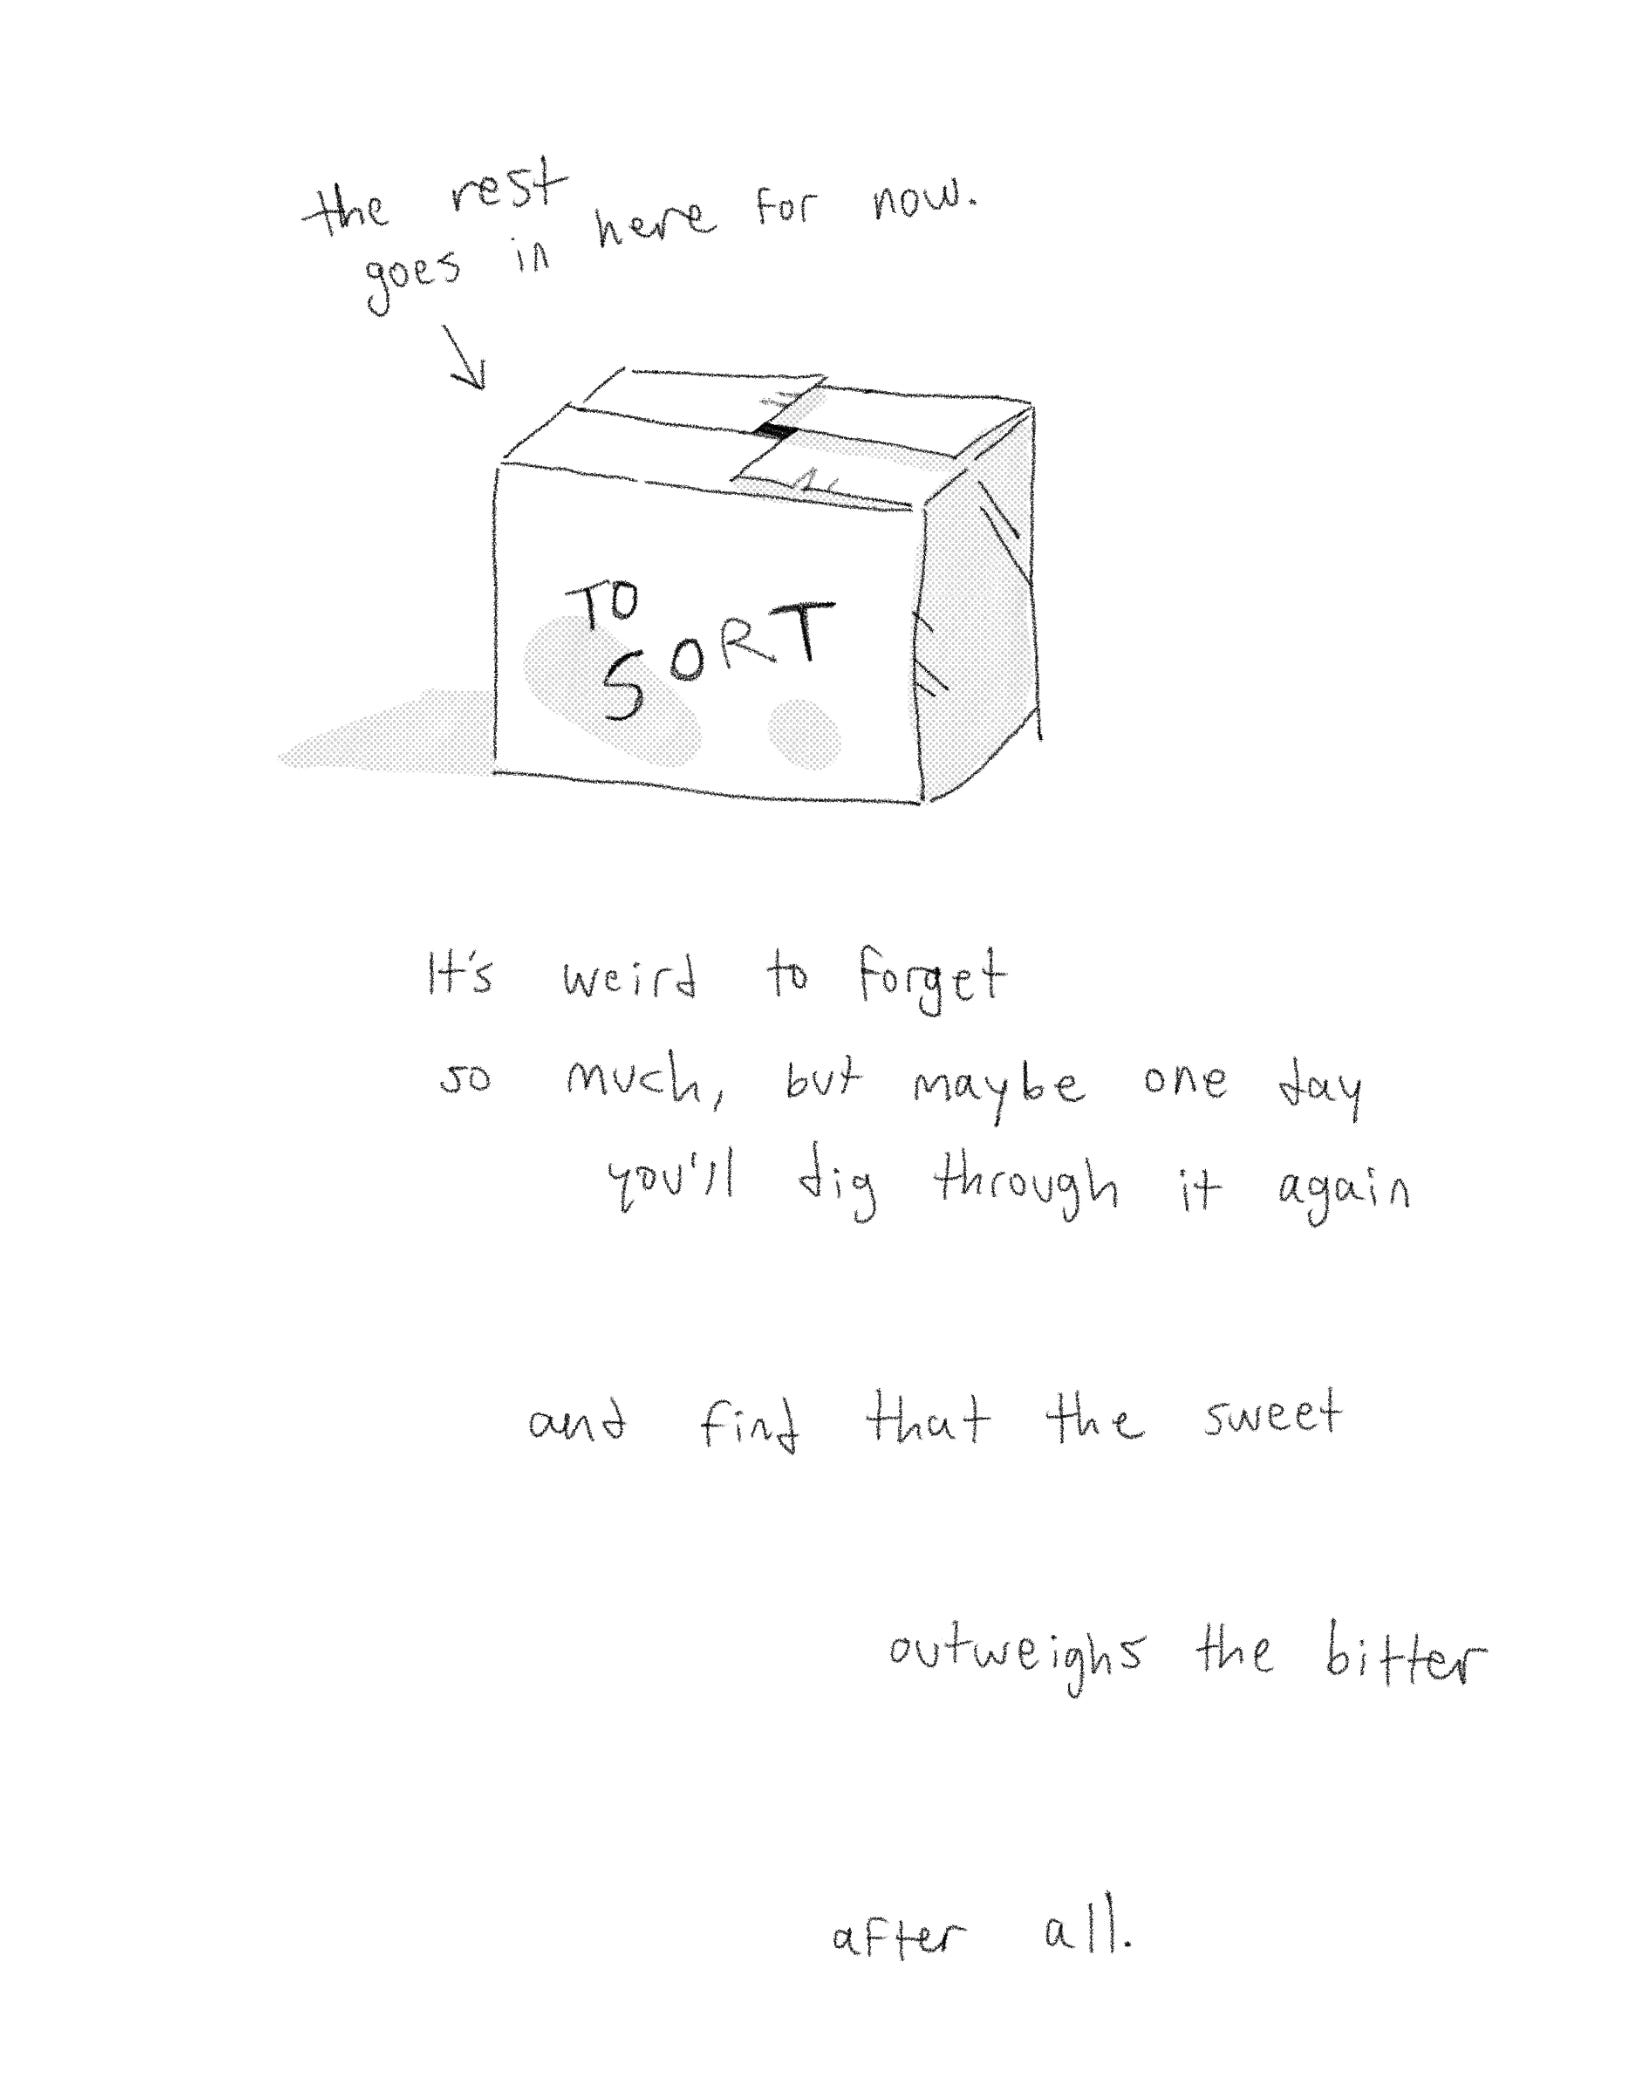 the rest
goes in here for now.
TO
SORT
It's weird to forget
so much, but maybe one day
you'll dig through it again
and find that the sweet
outweighs the bitter
after all.